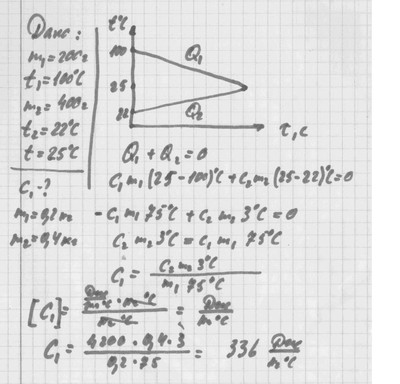 Дано:
m₁=200г
t₁=100°C
m₂=400г
t₂=22°C
t=25°C
C₁-?
m₁=0,2кг
m₂=0,4кг
t°C
100
25
22
Q₁
Q₂
τ,c
Q₁ + Q₂ = 0
C₁m₁(25-100)°C + C₂m₂(25-22)°C=0
-C₁m₁75°C + C₂m₂3°C = 0
C₂m₂3°C = C₁m₁75°C
C₁ = C₂m₂3°C / m₁75°C
[C₁] = =
C₁ = 4200·0,4·3 / 0,2·75 = 336